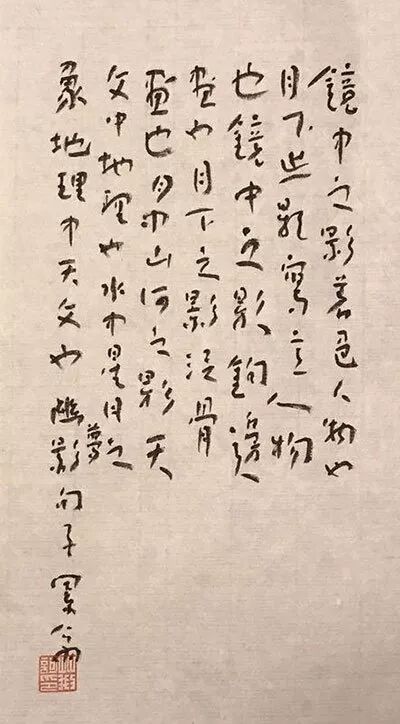 鏡中之影著色人物也
月下之影寫意人物
也鏡中之影鉤邊
畫也月下之影沒骨
畫也月中山河之影天
文中地理也水中星月之
象地理中天文也幽夢影句子 翁